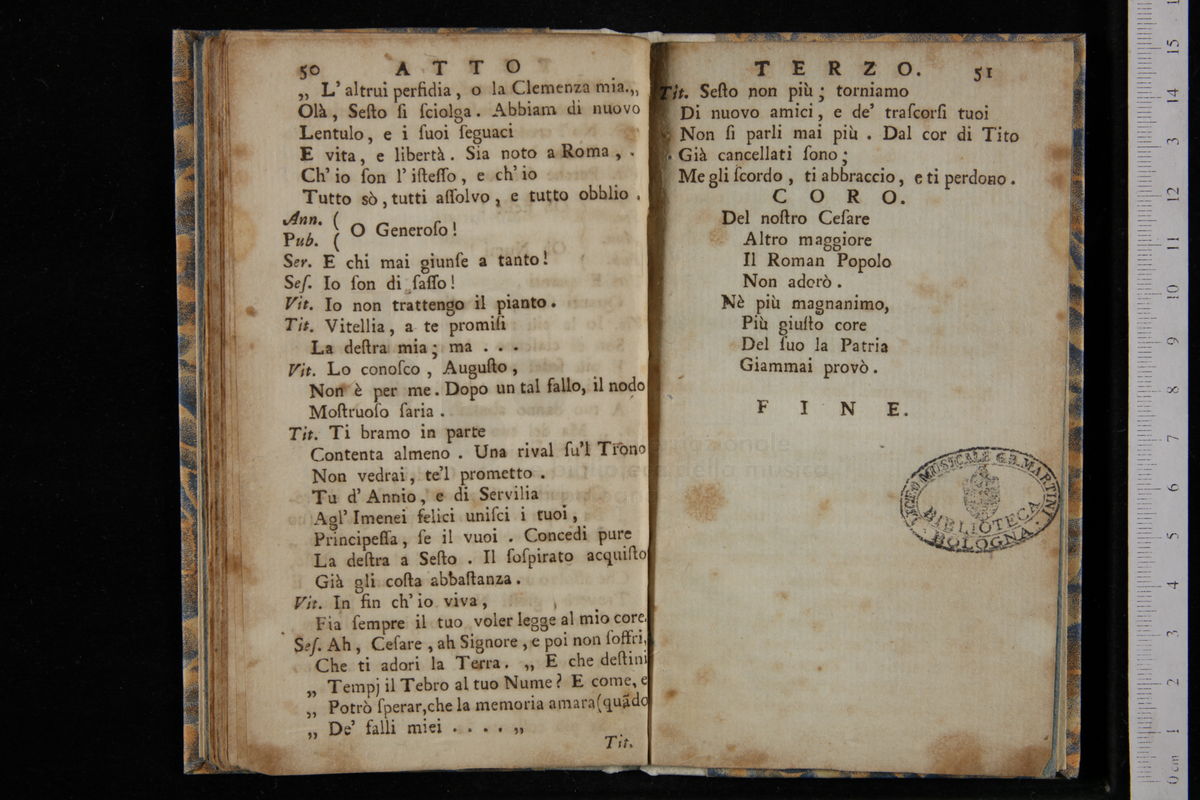 50 ATTO
„ L'altrui perfidia, o la Clemenza mia.„
Olà, Seſto ſi ſciolga. Abbiam di nuovo
Lentulo, e i ſuoi ſeguaci
E vita, e libertà. Sia noto a Roma,
Ch'io ſon l'iſteſſo, e ch'io
Tutto sò, tutti aſſolvo, e tutto obblio.
Ann. (
O Generoſo!
Pub. (
Ser. E chi mai giunſe a tanto!
Seſ. Io ſon di ſaſſo!
Vit. Io non trattengo il pianto.
Tit. Vitellia, a te promiſi
La deſtra mia; ma . . .
Vit. Lo conoſco, Auguſto,
Non è per me. Dopo un tal fallo, il nodo
Moſtruoſo ſaria.
Tit. Ti bramo in parte
Contenta almeno. Una rival ſu'l Trono
Non vedrai, te'l prometto.
Tu d'Annio, e di Servilia
Agl'Imenei felici uniſci i tuoi,
Principeſſa, ſe il vuoi. Concedi pure
La deſtra a Seſto. Il ſoſpirato acquiſto
Già gli coſta abbaſtanza.
Vit. In fin ch'io viva,
Fia ſempre il tuo voler legge al mio core.
Seſ. Ah, Ceſare, ah Signore, e poi non ſoffri,
Che ti adori la Terra. „ E che deſtini
„ Tempj il Tebro al tuo Nume? E come, e
„ Potrò ſperar, che la memoria amara (quãdo
„ De' falli miei . . . . „
Tit.
TERZO. 51
Tit. Seſto non più; torniamo
Di nuovo amici, e de' traſcorſi tuoi
Non ſi parli mai più. Dal cor di Tito
Già cancellati ſono;
Me gli ſcordo, ti abbraccio, e ti perdono.
CORO.
Del noſtro Ceſare
Altro maggiore
Il Roman Popolo
Non adorò.
Nè più magnanimo,
Più giuſto core
Del ſuo la Patria
Giammai provò.
FINE.
LICEO MUSICALE G.B. MARTINI
BIBLIOTECA
BOLOGNA